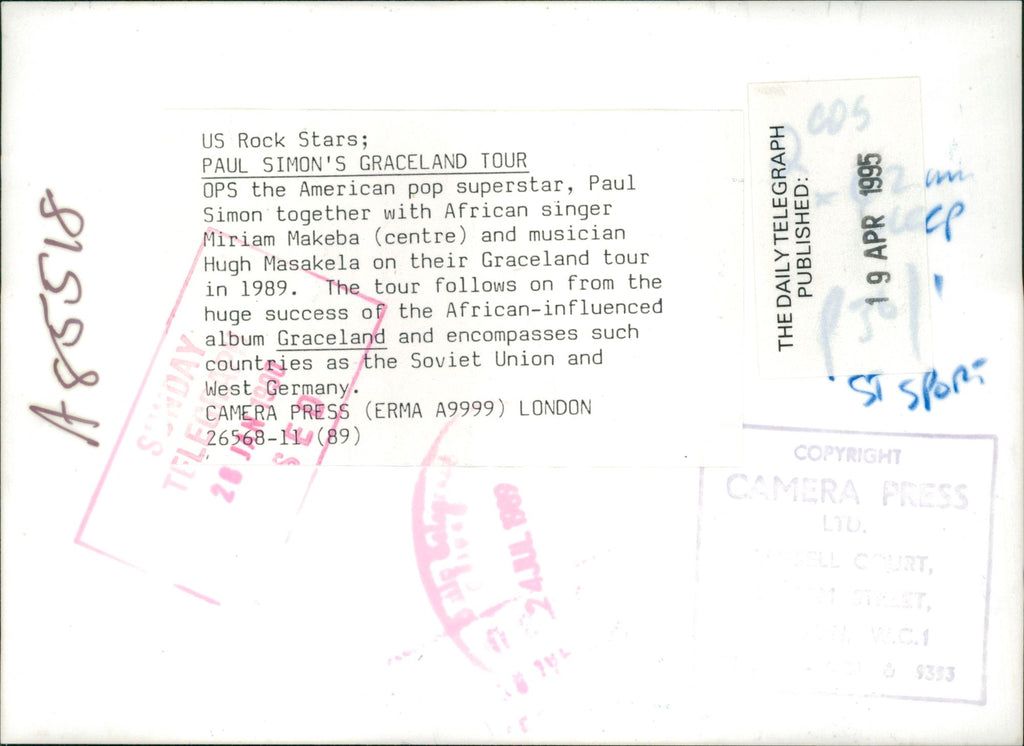 US Rock Stars;
PAUL SIMON'S GRACELAND TOUR
OPS the American pop superstar, Paul
Simon together with African singer
Miriam Makeba (centre) and musician
Hugh Masakela on their Graceland tour
in 1989. The tour follows on from the
huge success of the African-influenced
album Graceland and encompasses such
countries as the Soviet Union and
West Germany.
CAMERA PRESS (ERMA A9999) LONDON
26568-11 (89)
A85518
THE DAILY TELEGRAPH
PUBLISHED:
19 APR 1995
CDS
CP
ST SPORT
SUNDAY
TELEGRAPH
28 JAN 1990
24 JUL 1989
COPYRIGHT
CAMERA PRESS
LTD.
COURT,
STREET,
W.C.1
9393